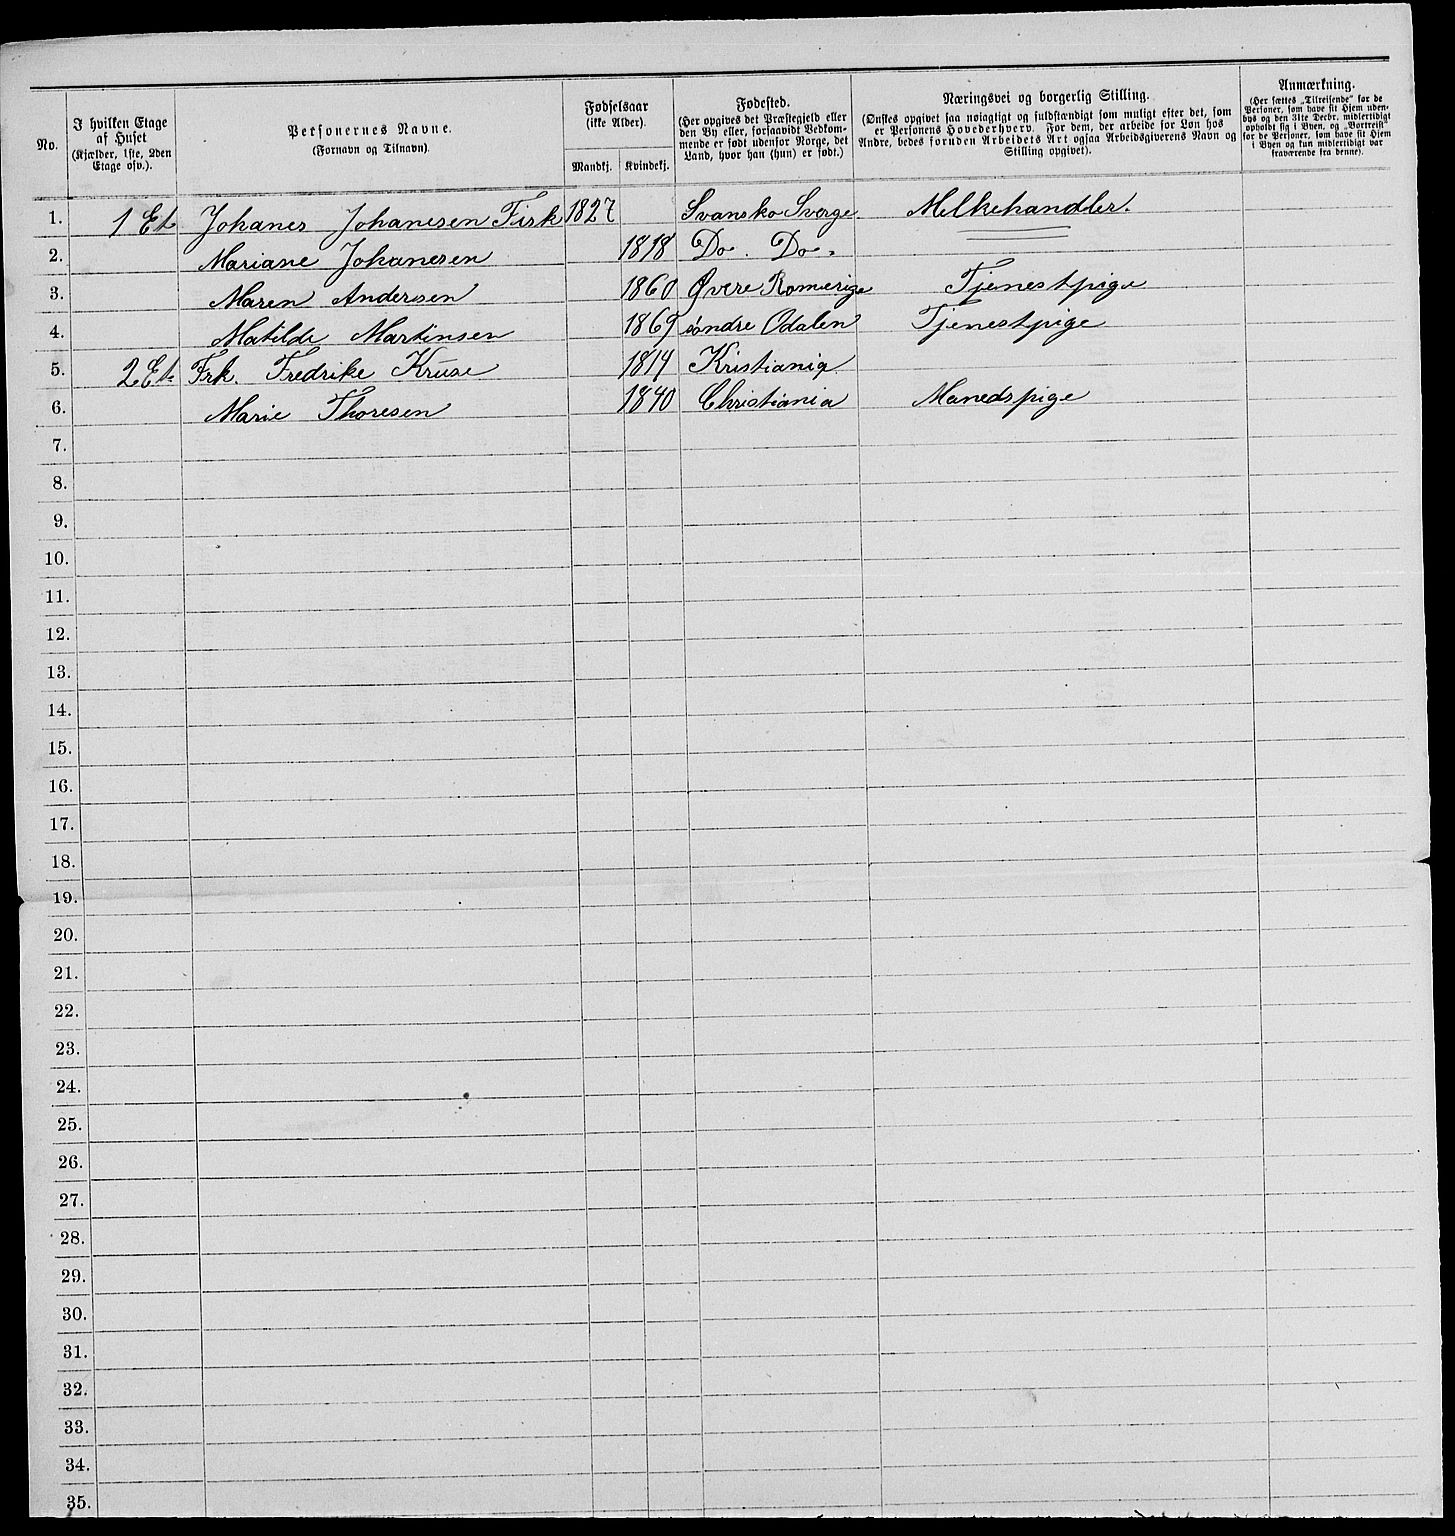 No.
I hvilken Etage af Huset
(Kjælder, 1ste, 2den Etage osv.).
Personernes Navne.
(Fornavn og Tilnavn).
Fødselsaar
(ikke Alder).
Mandkj. Kvindekj.
Fødested.
(Her opgives det Præstegjeld eller
den By eller, forsaavidt Vedkom-
mende er født udenfor Norge, det
Land, hvor han (hun) er født.)
Næringsvei og borgerlig Stilling.
(Ønskes opgivet saa nøiagtigt og fuldstændigt som muligt efter det, som
er Personens Hovederhverv. For dem, der arbeide for Løn hos
Andre, bedes foruden Arbeidets Art ogsaa Arbeidsgiverens Navn og
Stilling opgivet).
Anmærkning.
(Her sættes „Tilreisende" for de
Personer, som have sit Hjem uden-
bys og den 31te Decbr. midlertidigt
opholdt sig i Byen, og „Bortreist"
for de Personer, som have sit Hjem
i Byen og kun midlertidigt var
fraværende fra denne).
1. 1 Et. Johanes Johanesen Fisk 1827 Svansko Sverge Melkehandler.
2. Mariane Johanesen 1818 Do. Do.
3. Maren Andersen 1860 Øvere Romerige Tjenestpige
4. Matilde Martinsen 1869 søndre Odalen Tjenestpige
5. 2 Et. Frk. Fredrike Kruse 1814 Kristiania
6. Marie Thoresen 1840 Christiania Manedspige
7.
8.
9.
10.
11.
12.
13.
14.
15.
16.
17.
18.
19.
20.
21.
22.
23.
24.
25.
26.
27.
28.
29.
30.
31.
32.
33.
34.
35.